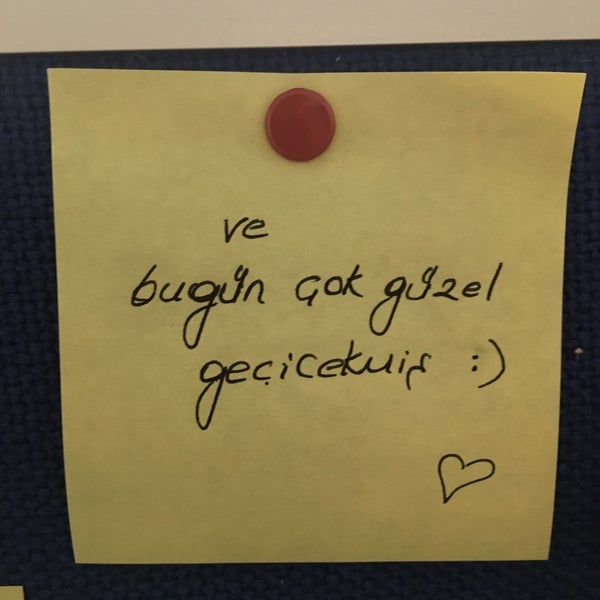 ve
bugün çok güzel
geçicekmiş :)